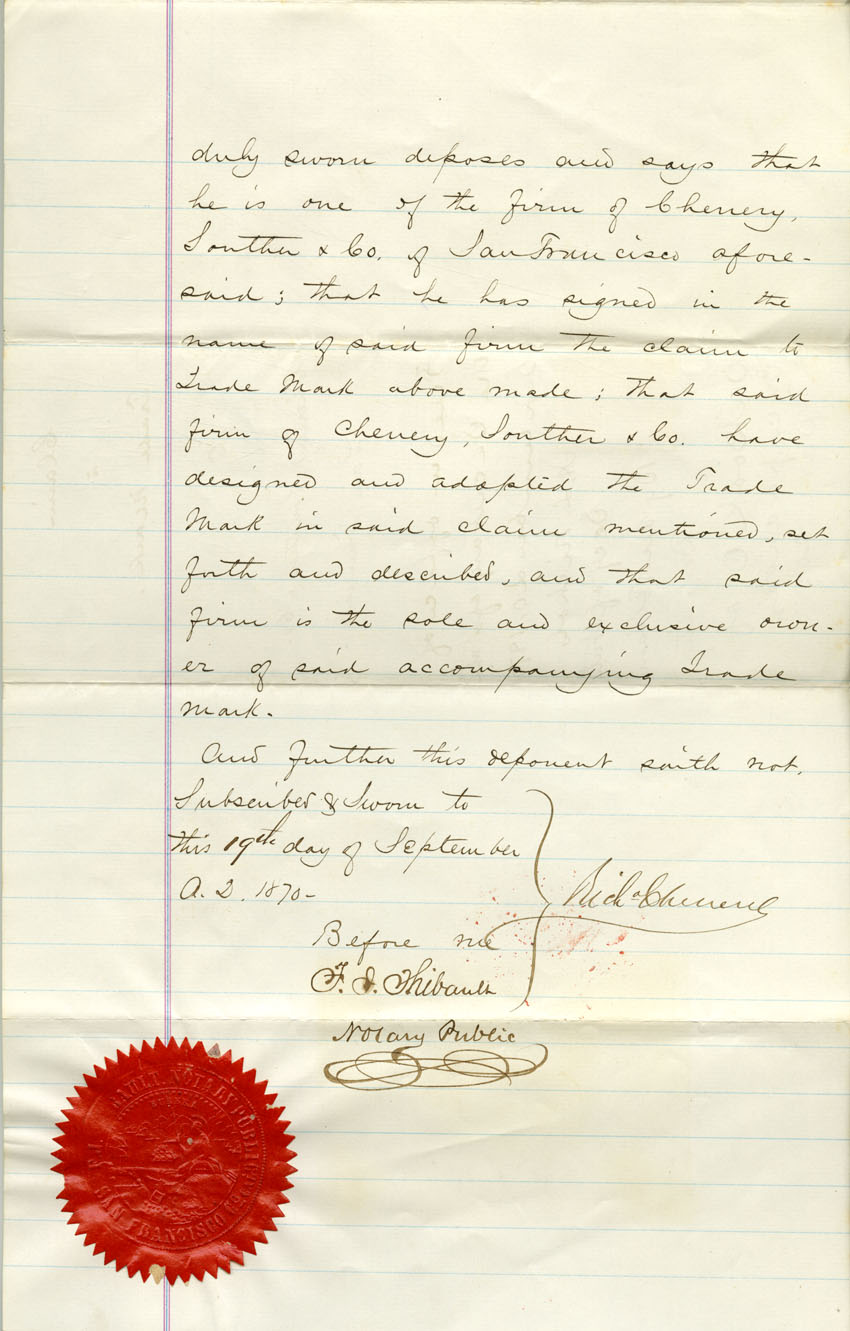 duly sworn deposes and says that
he is one of the firm of Chenery,
Souther & Co. of San Francisco afore-
said; that he has signed in the
name of said firm the claim to
Trade Mark above made; that said
firm of Chenery, Souther & Co. have
designed and adopted the Trade
Mark in said claim mentioned, set
forth and described, and that said
firm is the sole and exclusive own-
er of said accompanying Trade
mark.
And further this deponent saith not.
Subscribed & Sworn to
this 19th day of September
A.D. 1870-
Richd Chenery
Before me
F. J. Thibault
Notary Public
NOTARY PUBLIC
SAN FRANCISCO